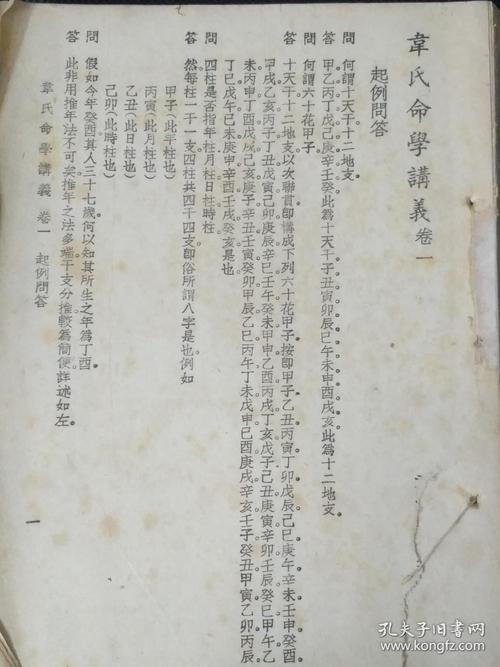 韋氏命學講義 卷一
起例問答
問 何謂十天干十二地支。
答 甲乙丙丁戊己庚辛壬癸此為十天干子丑寅卯辰巳午未申酉戌亥此為十二地支。
問 何謂六十花甲子。
答 十天干十二地支以次聯貫即構成下列六十花甲子按即甲子乙丑丙寅丁卯戊辰己巳庚午辛未壬申癸酉
甲戌乙亥丙子丁丑戊寅己卯庚辰辛巳壬午癸未甲申乙酉丙戌丁亥戊子己丑庚寅辛卯壬辰癸巳甲午乙
未丙申丁酉戊戌己亥庚子辛丑壬寅癸卯甲辰乙巳丙午丁未戊申己酉庚戌辛亥壬子癸丑甲寅乙卯丙辰
丁巳戊午己未庚申辛酉壬戌癸亥是也。
問 四柱是否指年柱月柱日柱時柱。
答 然每柱一干一支四柱共四干四支即俗所謂八字是也例如
甲子(此年柱也)
丙寅(此月柱也)
乙丑(此日柱也)
己卯(此時柱也)
問 假如今年癸酉其人三十七歲何以知其所生之年為丁酉。
答 此非用推年法不可矣推年之法多端干支分推較為簡便詳述如左。
韋氏命學講義 卷一 起例問答
一
孔夫子旧书网
www.kongfz.com